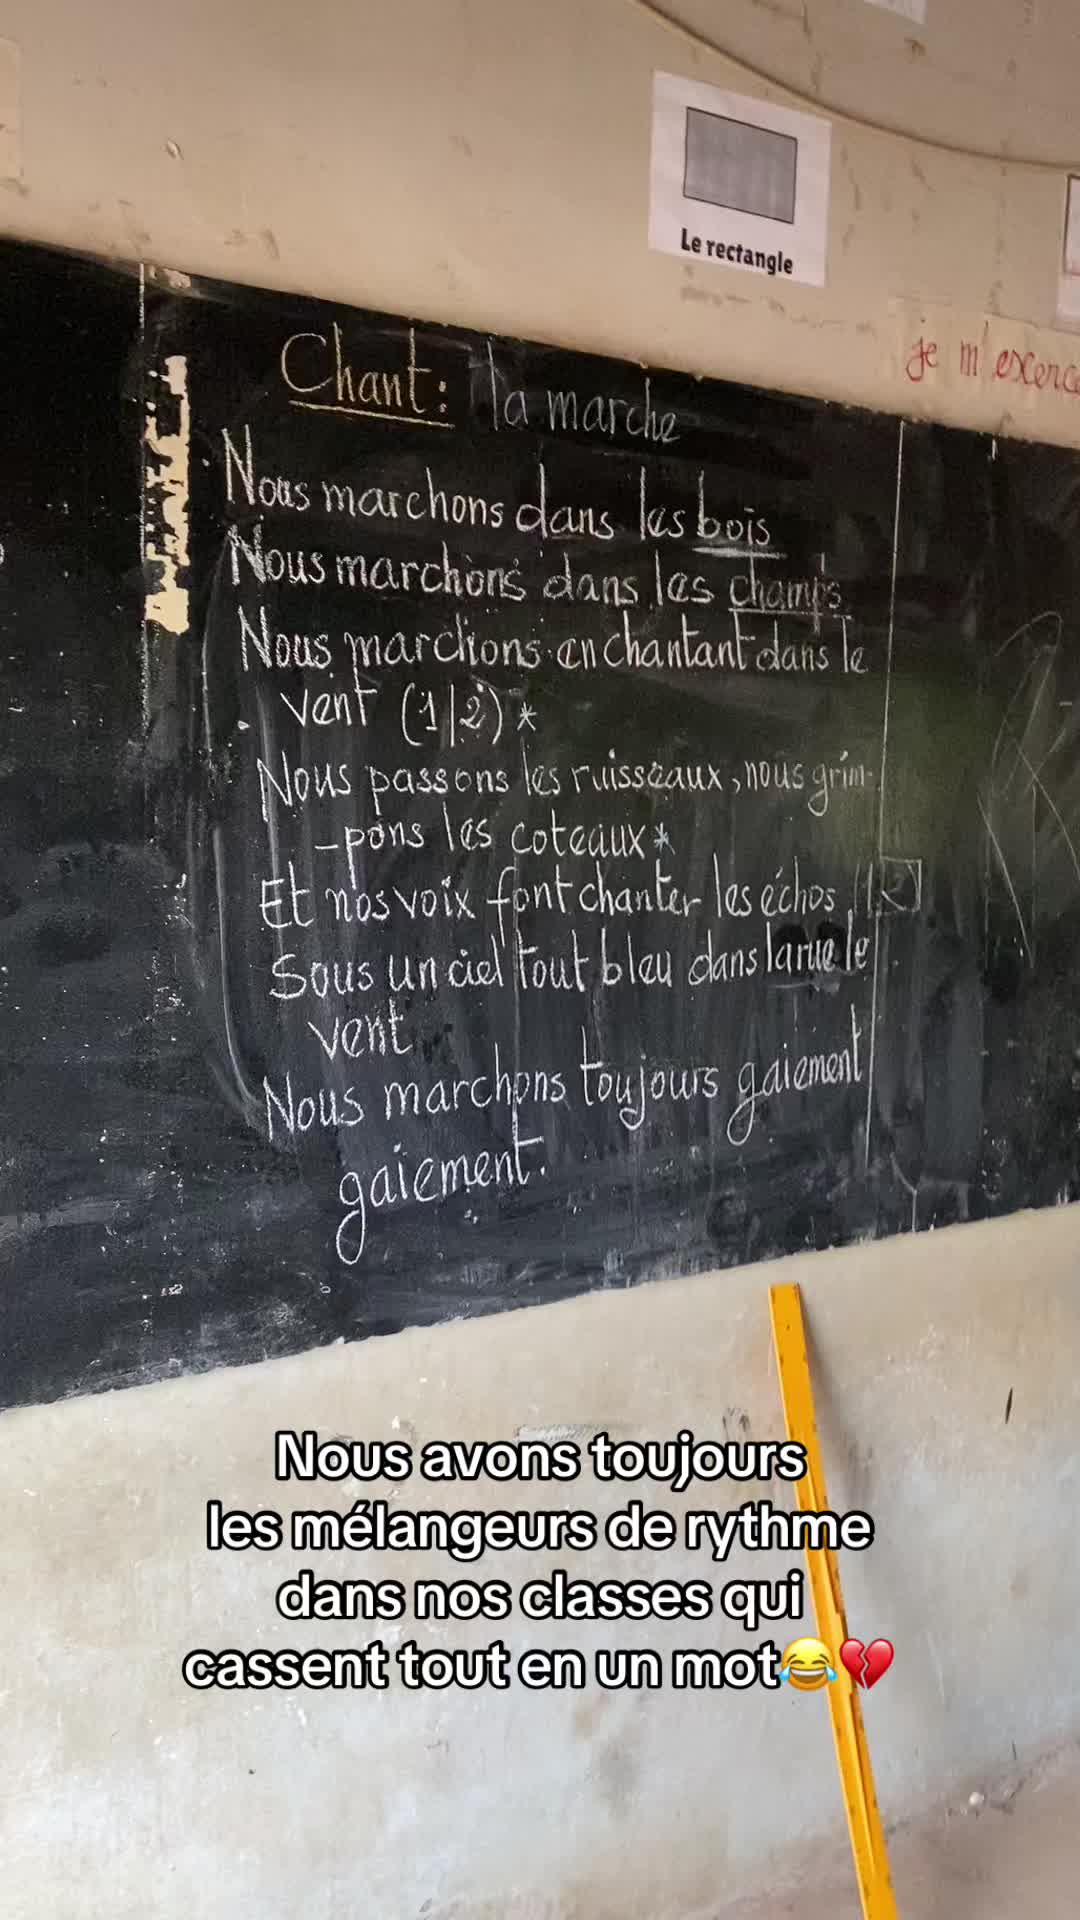 Le rectangle
je m'exerce
Chant: la marche
Nous marchons dans les bois
Nous marchons dans les champs
Nous marchons en chantant dans le
vent (1/2) *
Nous passons les ruisseaux, nous grim-
-pons les coteaux *
Et nos voix font chanter les échos
Sous un ciel tout bleu dans la rue le
vent
Nous marchons toujours gaiement
gaiement.
Nous avons toujours
les mélangeurs de rythme
dans nos classes qui
cassent tout en un mot😂💔